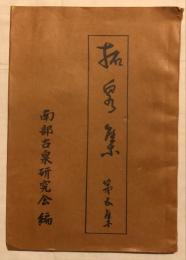 拓泉集 第五集
南部古泉研究会編